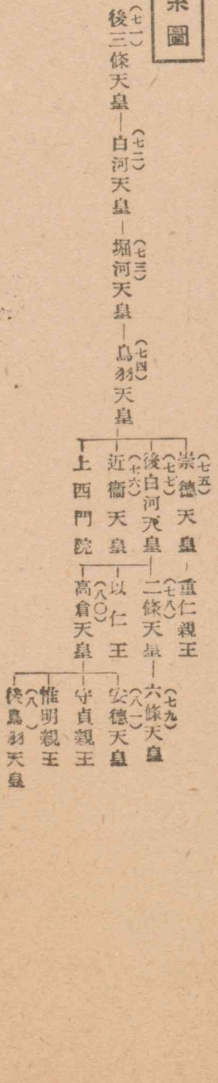 系圖
(七一)
後三條天皇
(七二)
白河天皇
(七三)
堀河天皇
(七四)
鳥羽天皇
(七五)
崇德天皇
重仁親王
(七七)
後白河天皇
(七八)
二條天皇
(七九)
六條天皇
(七六)
近衞天皇
以仁王
上西門院
(八〇)
高倉天皇
(八一)
安德天皇
守貞親王
惟明親王
後鳥羽天皇